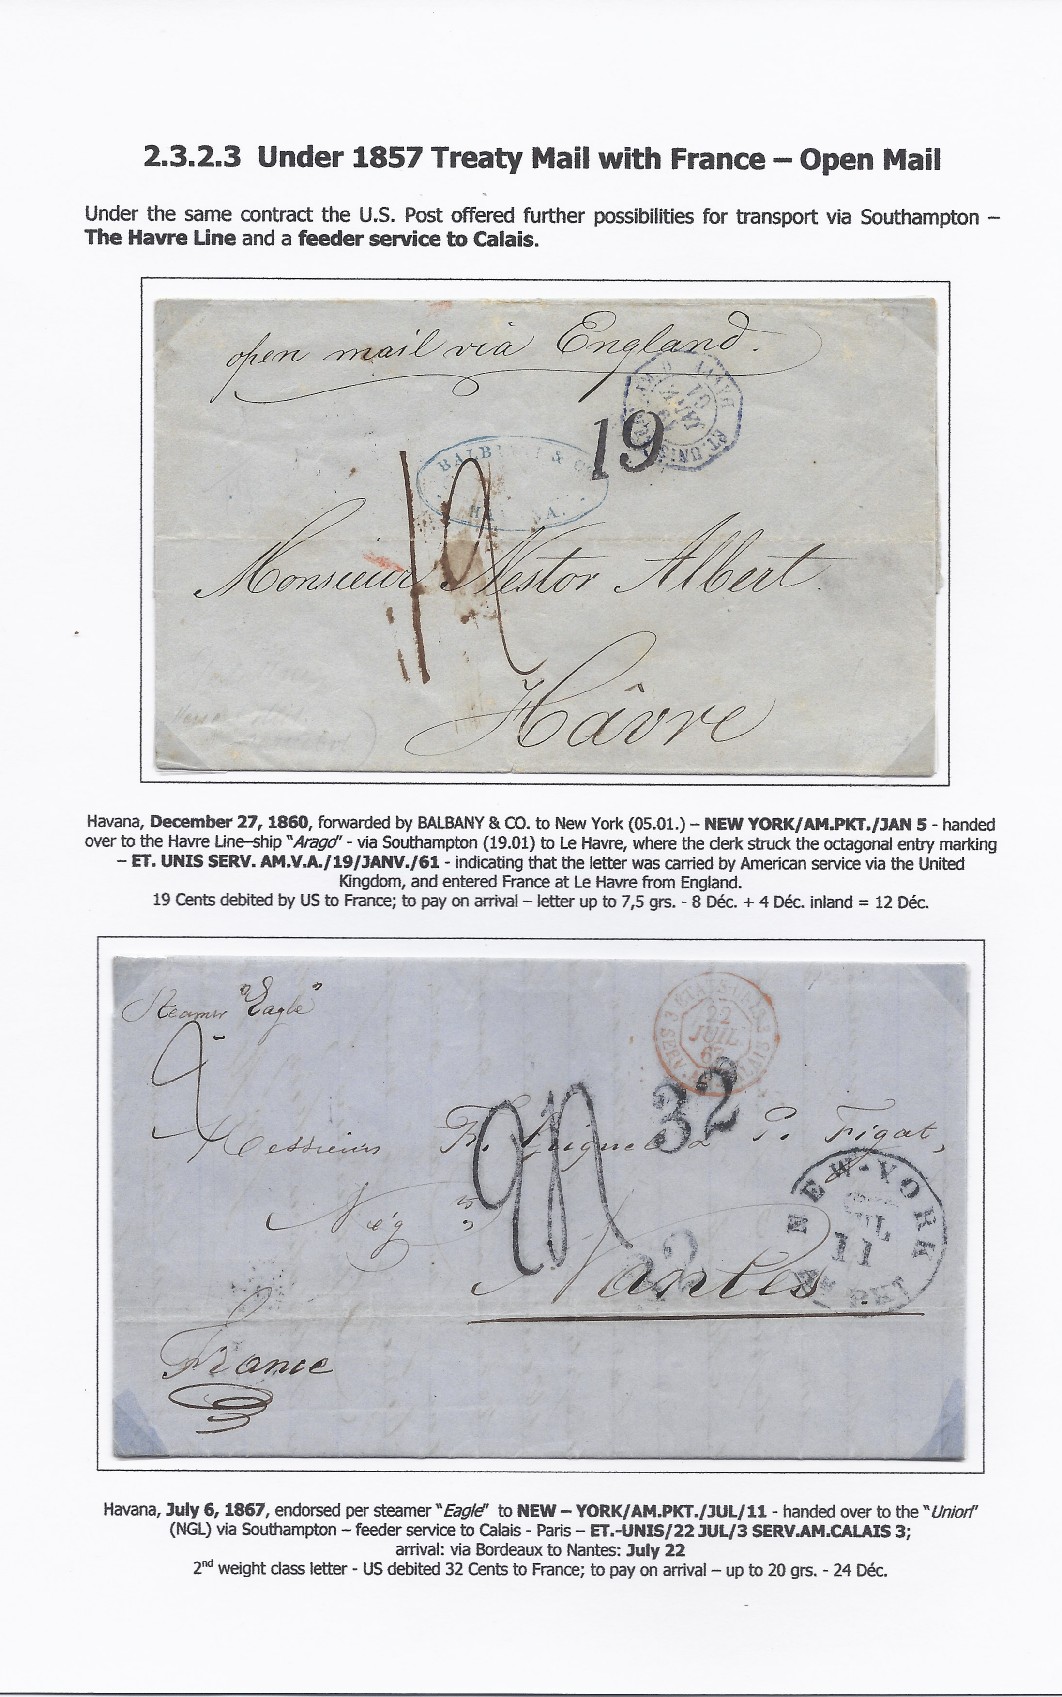 2.3.2.3 Under 1857 Treaty Mail with France – Open Mail
Under the same contract the U.S. Post offered further possibilities for transport via Southampton –
The Havre Line and a feeder service to Calais.
open mail via England.
19
BALB & C
HA A.
12
Monsieur Nestor Albert
Hâvre
Havana, December 27, 1860, forwarded by BALBANY & CO. to New York (05.01.) – NEW YORK/AM.PKT./JAN 5 - handed
over to the Havre Line–ship "Arago" - via Southampton (19.01) to Le Havre, where the clerk struck the octagonal entry marking
– ET. UNIS SERV. AM.V.A./19/JANV./61 - indicating that the letter was carried by American service via the United
Kingdom, and entered France at Le Havre from England.
19 Cents debited by US to France; to pay on arrival – letter up to 7,5 grs. - 8 Déc. + 4 Déc. inland = 12 Déc.
Steamer "Eagle"
22
JUIL
67
2
32
Messieurs F. P. Figat,
NEW-YORK
JUL
11
PKT
Nég
24
32
Nantes
France
Havana, July 6, 1867, endorsed per steamer "Eagle" to NEW – YORK/AM.PKT./JUL/11 - handed over to the "Union"
(NGL) via Southampton – feeder service to Calais - Paris – ET.-UNIS/22 JUL/3 SERV.AM.CALAIS 3;
arrival: via Bordeaux to Nantes: July 22
2nd weight class letter - US debited 32 Cents to France; to pay on arrival – up to 20 grs. - 24 Déc.